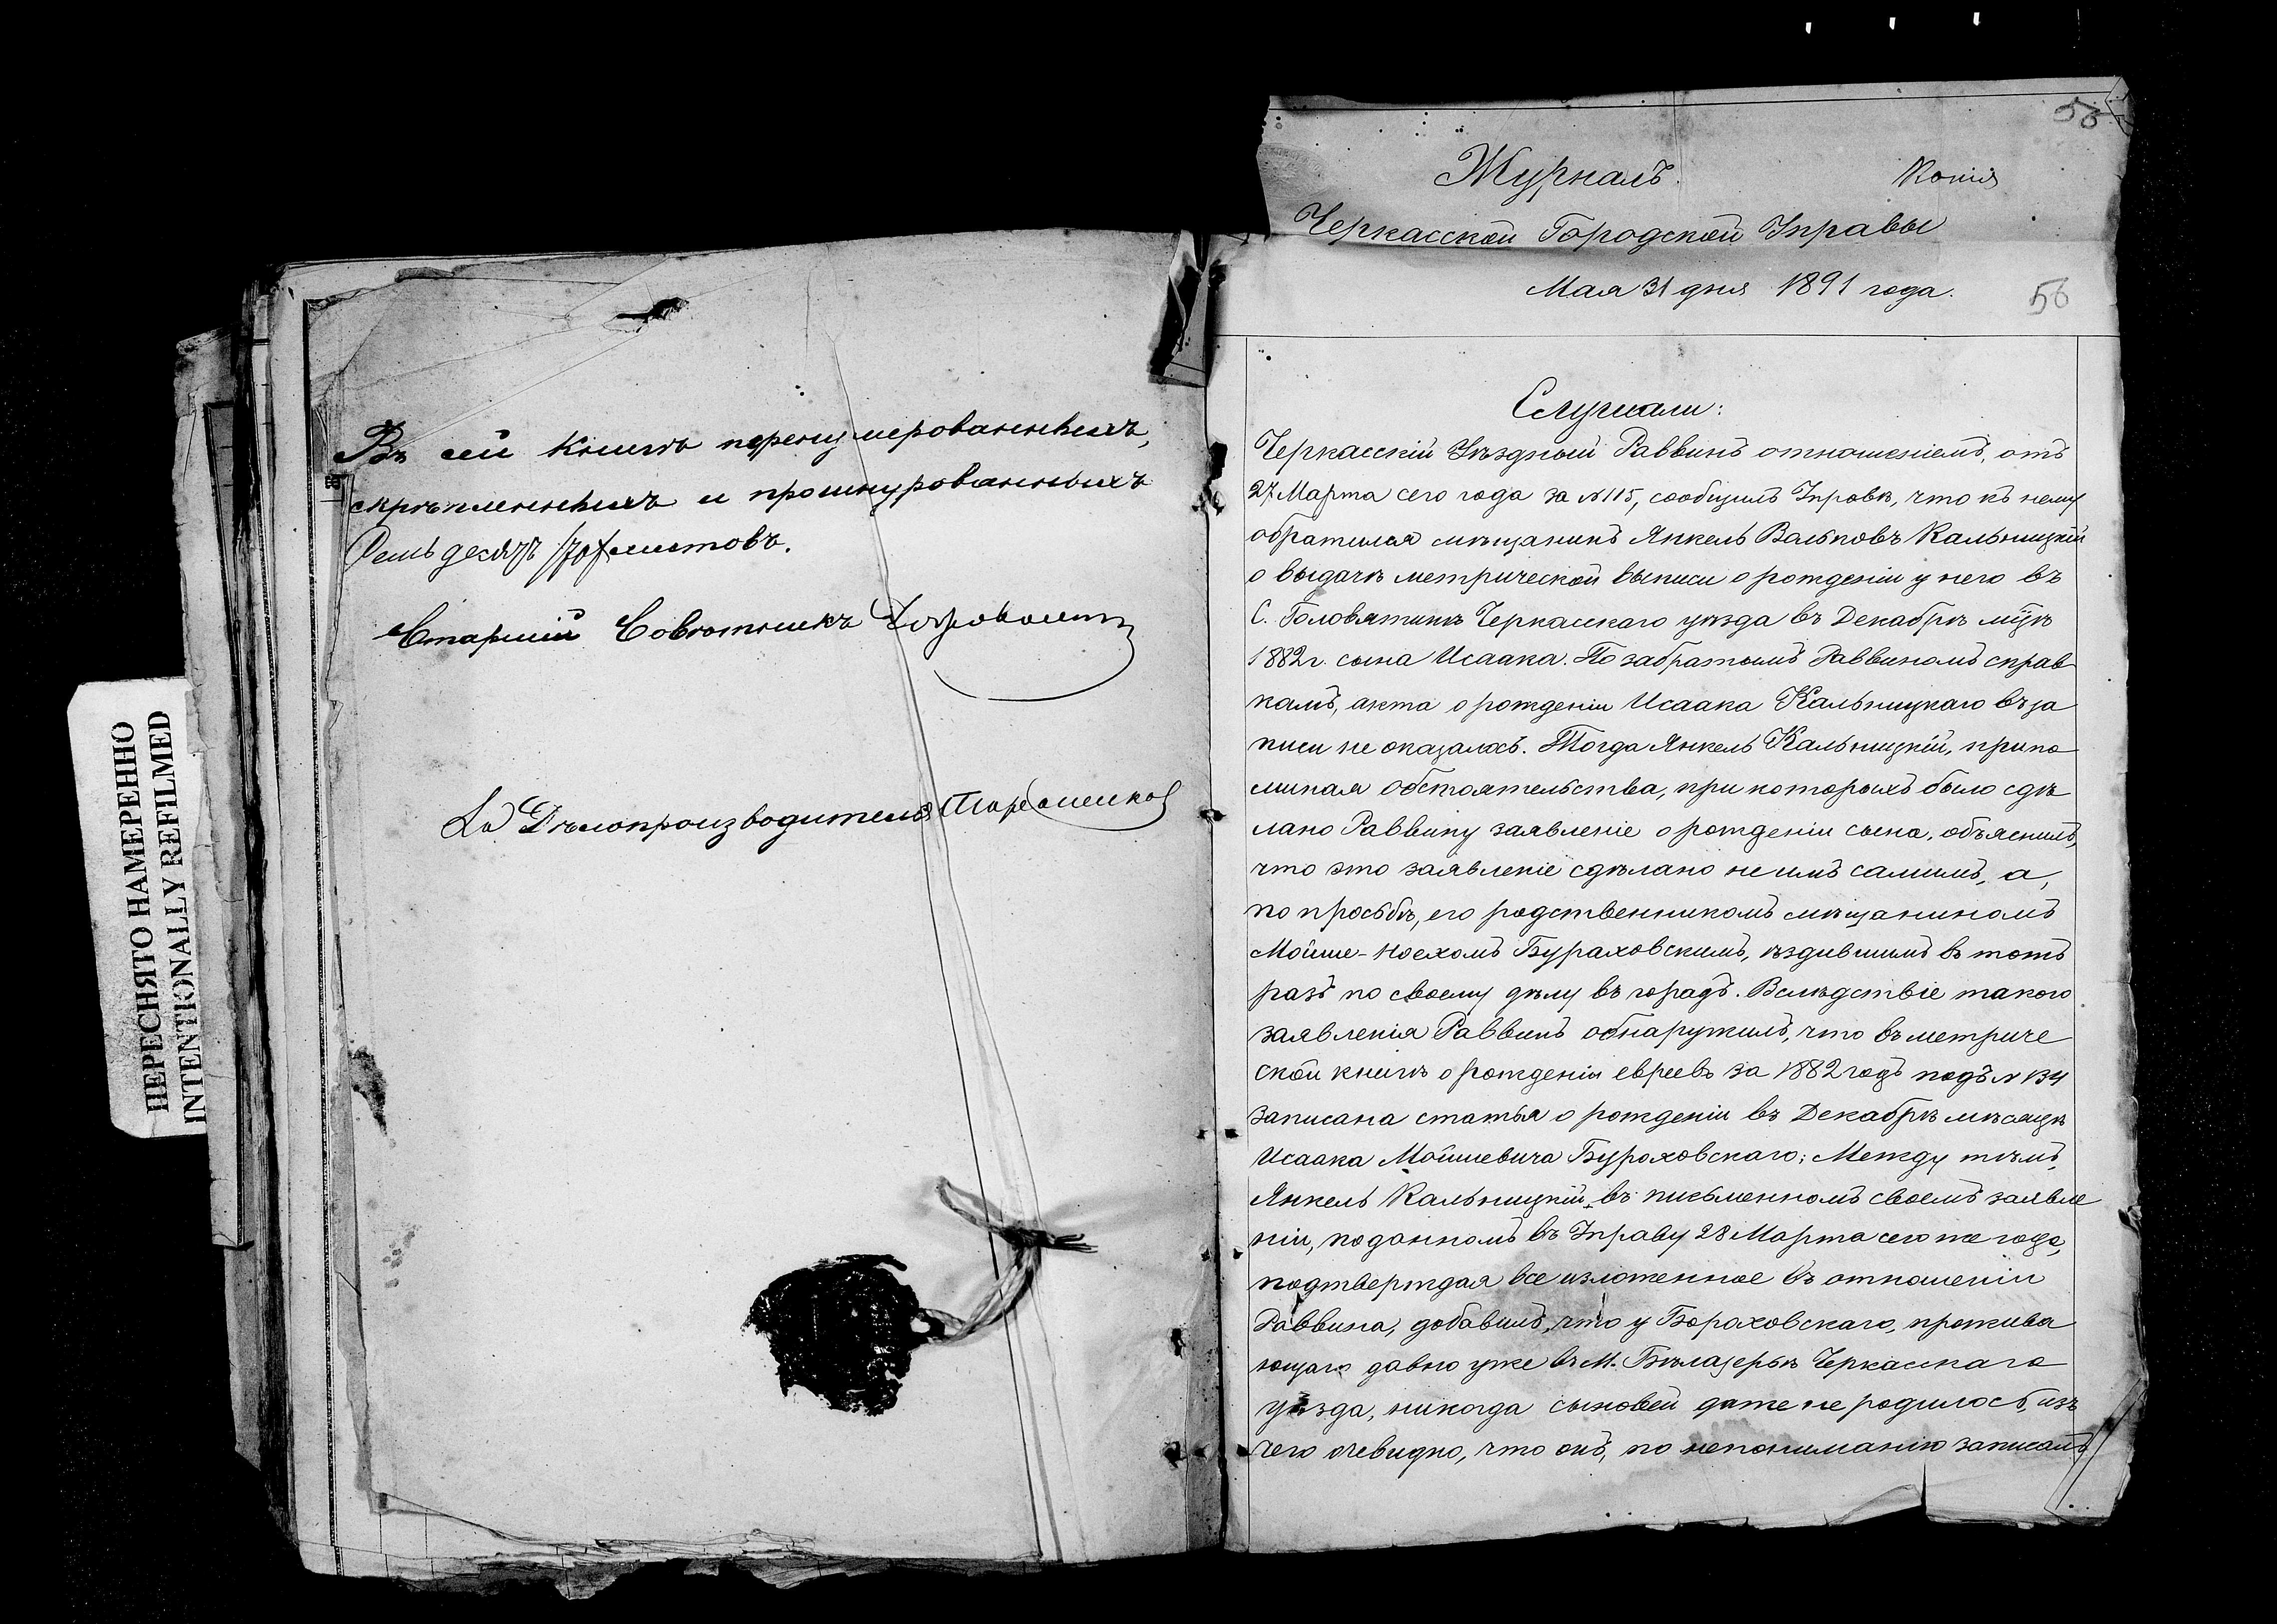 ПЕРЕСНЯТО НАМЕРЕННО
INTENTIONALLY REFILMED
Въ сей книгѣ перенумерованныхъ,
скрѣпленныхъ и прошнурованныхъ
Семьдесятъ /70/ листовъ.
Старшій Совѣтникъ
За Дѣлопроизводителя
56
Журналъ. Копія
Черкасской Городской Управы
Мая 31 дня 1891 года.
56
Слушали:
Черкасскій Уѣздный Раввинъ отношеніемъ, отъ
27 Марта сего года за № 115, сообщилъ Управѣ, что къ нему
обратился мѣщанинъ Янкель Вольковъ Кальницкій
о выдачѣ метрической выписи о рожденіи у него въ
С. Головятинѣ Черкасскаго уѣзда въ Декабрѣ мцѣ
1882 г. сына Исаака. По забратымъ Раввиномъ справ
камъ, акта о рожденіи Исаака Кальницкаго въ за
писи не оказалось. Тогда Янкель Кальницкій, припо
миная обстоятельства, при которыхъ было сдѣ
лано Раввину заявленіе о рожденіи сына, объяснилъ,
что это заявленіе сдѣлано не имъ самимъ, а,
по просьбѣ, его родственникомъ мѣщаниномъ
Мойше-Ноехомъ Бураховскимъ, ѣздившимъ въ тотъ
разъ по своему дѣлу въ городъ. Вслѣдствіе такого
заявленія Раввинъ обнаружилъ, что въ метриче
ской книгѣ о рожденіи евреевъ за 1882 годъ подъ № 134
записана статья о рожденіи въ Декабрѣ мѣсяцѣ
Исаака Мойшевича Бураховскаго; Между тѣмъ,
Янкель Кальницкій въ письменномъ своемъ заявле
ніи, поданномъ въ Управу 28 Марта сего же года,
подтверждая все изложенное въ отношеніи
Раввина, добавилъ, что у Бораховскаго, прожива
ющаго давно уже въ М. Бѣлазерьѣ Черкасскаго
уѣзда, никогда сыновей даже не родилось, изъ
чего очевидно, что онъ, по непониманію записалъ